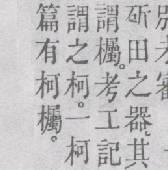 斫田之器。其
謂欘。考工記
謂之柯。一柯
篇有柯欘。